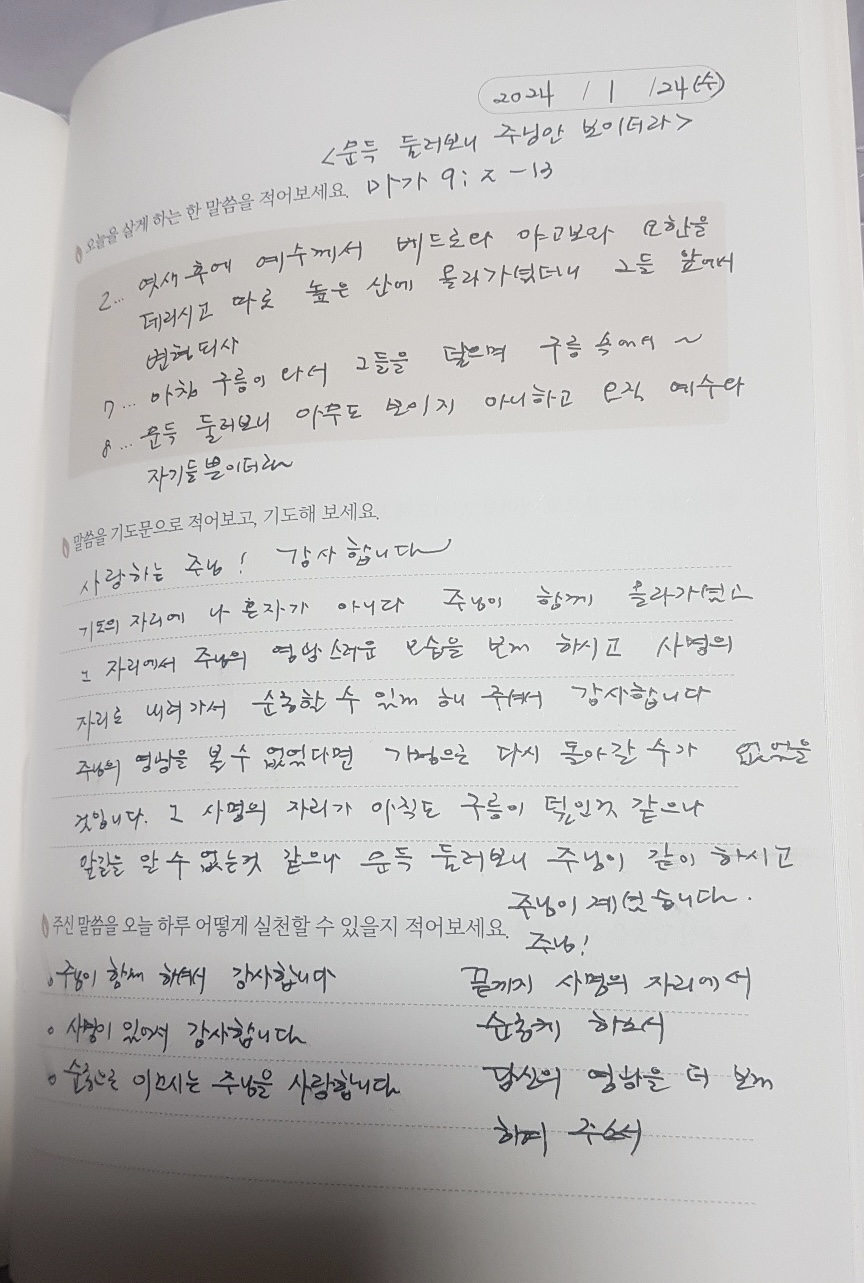 2024 / 1 /24(수)
<문득 둘러보니 주님만 보이더라>
오늘을 살게 하는 한 말씀을 적어보세요. 마가 9: 2 -13
2... 엿새 후에 예수께서 베드로와 야고보와 요한을
데리시고 따로 높은 산에 올라가셨더니 그들 앞에서
변형되사
7... 마침 구름이 와서 그들을 덮으며 구름 속에서 ~
8... 문득 둘러보니 아무도 보이지 아니하고 오직 예수와
자기들뿐이더라
말씀을 기도문으로 적어보고, 기도해 보세요.
사랑하는 주님! 감사합니다
기도의 자리에 나 혼자가 아니다 주님이 함께 올라가셨고
그 자리에서 주님의 영광스러운 모습을 보게 하시고 사명의
자리로 내려가서 순종할 수 있게 해 주셔서 감사합니다
주님의 영광을 볼 수 없었다면 가정으로 다시 돌아갈 수가 없었을
것입니다. 그 사명의 자리가 아직도 구름이 덮인것 같으나
앞길을 알 수 없는것 같으나 문득 둘러보니 주님이 같이 하시고
주님이 계셨습니다.
주신 말씀을 오늘 하루 어떻게 실천할 수 있을지 적어보세요.
주님!
o 주님이 함께 하셔서 감사합니다
끝까지 사명의 자리에서
o 사명이 있어서 감사합니다
순종케 하소서
o 순종으로 이끄시는 주님을 사랑합니다
당신의 영광을 더 보게
하여 주소서